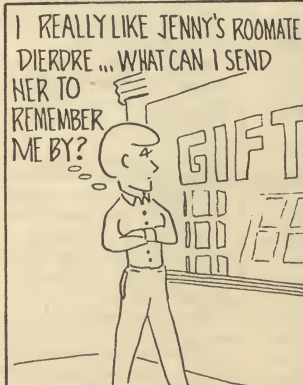 I REALLY LIKE JENNY'S ROOMATE
DIERDRE ... WHAT CAN I SEND
HER TO
REMEMBER
ME BY?
GIFT